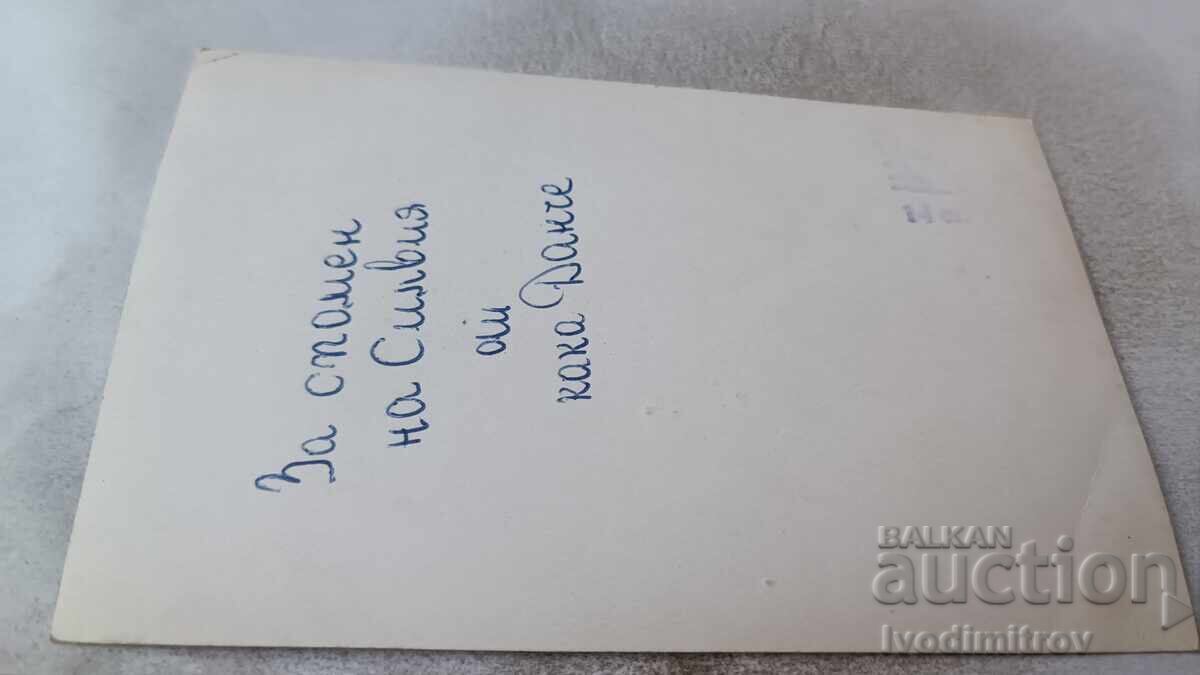 За спомен
на Силвия
от
кака Данче
BALKAN
auction
Ivodimitrov